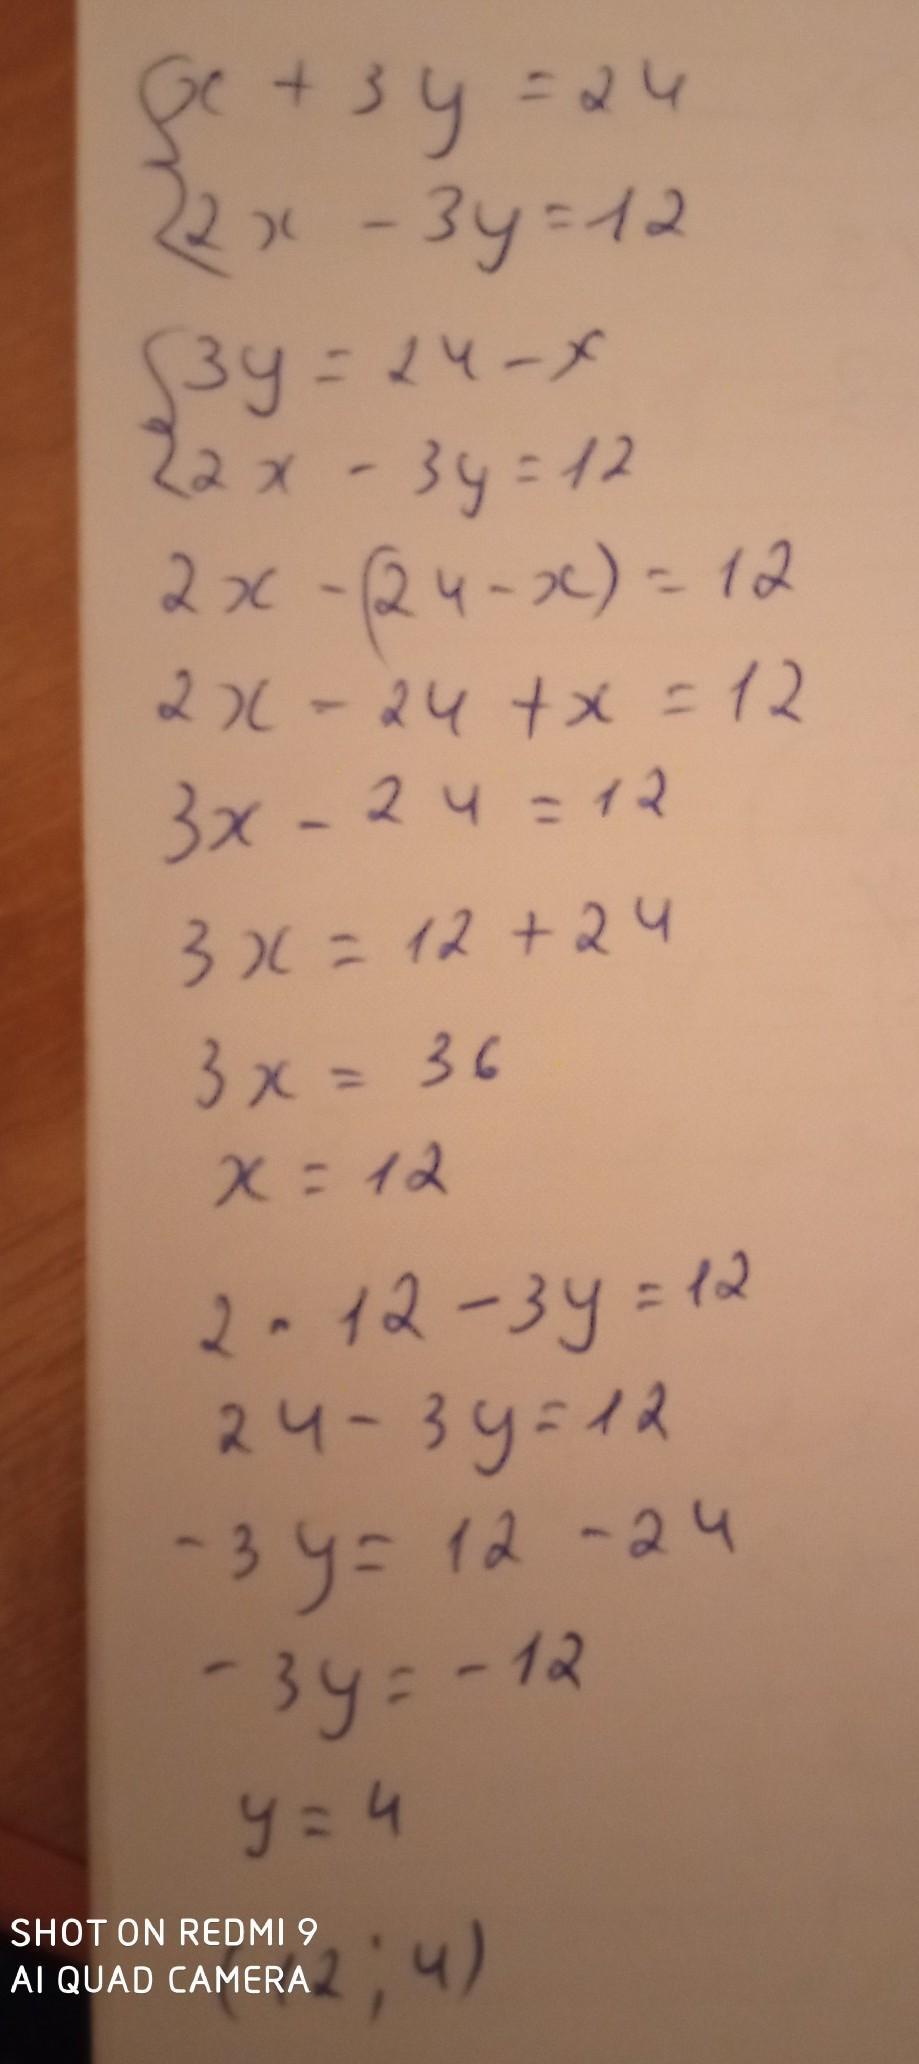 {x + 3y = 24
{2x - 3y = 12
{3y = 24 - x
{2x - 3y = 12
2x - (24 - x) = 12
2x - 24 + x = 12
3x - 24 = 12
3x = 12 + 24
3x = 36
x = 12
2 · 12 - 3y = 12
24 - 3y = 12
-3y = 12 - 24
-3y = -12
y = 4
(12; 4)
SHOT ON REDMI 9
AI QUAD CAMERA